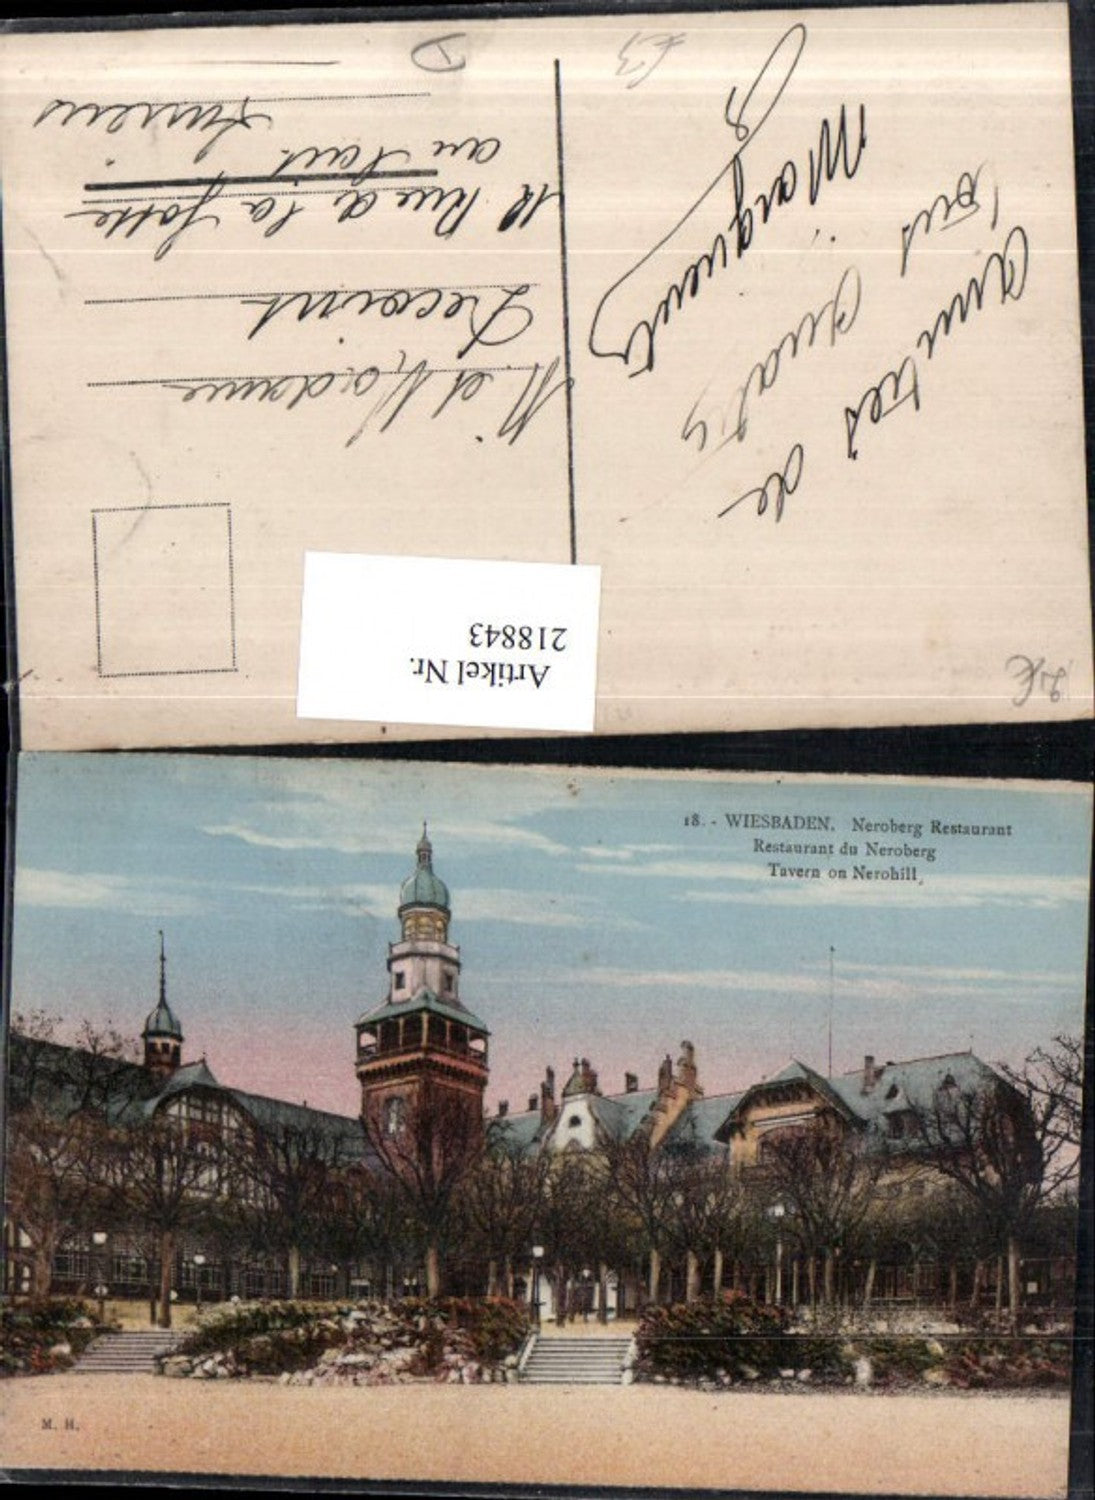 Amitiés de
tous quatre
Marguerite
M. et Madame
Decoint
Rue à la
au
Amiens
Artikel Nr.
218843
18. - WIESBADEN. Neroberg Restaurant
Restaurant du Neroberg
Tavern on Nerohill.
M. H.